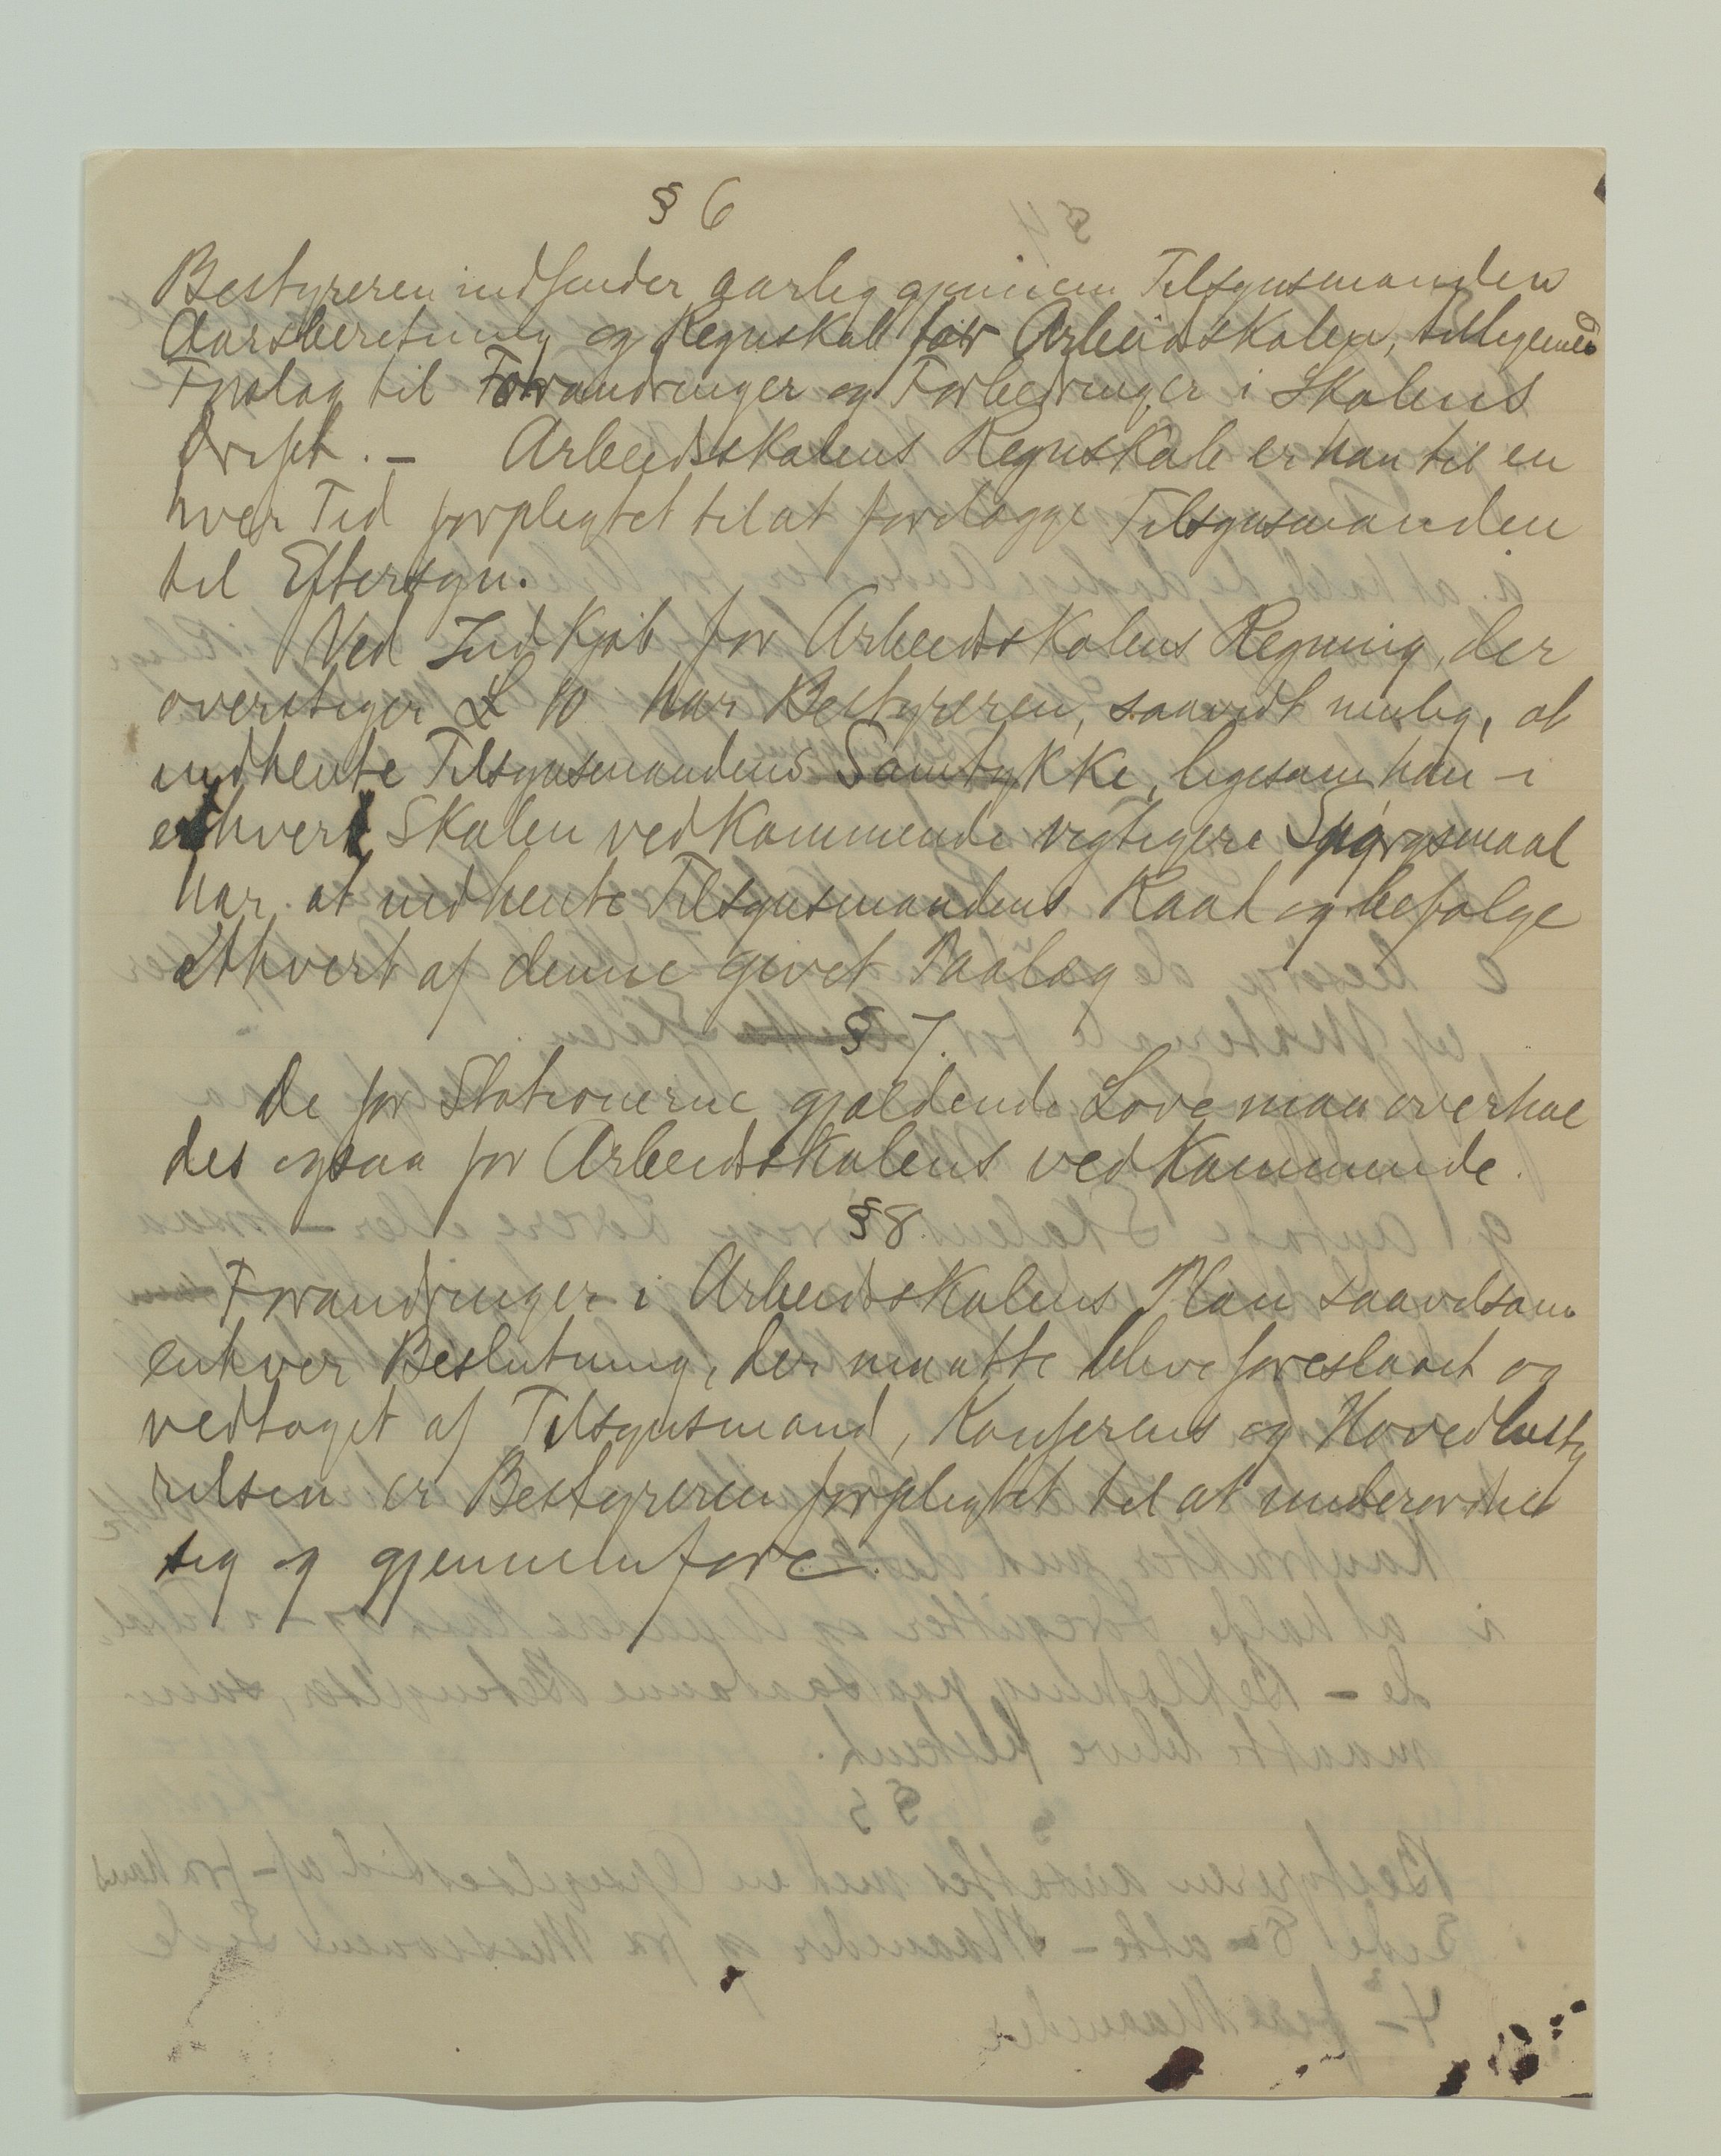 § 6
Bestyreren indsender aarlig gjennem Tilsynsmanden
Aarsberetning og Regnskab for Arbeidsskolen, tilligemed
Forslag til Forandringer og Forbedringer i Skolens
Drift. – Arbeidsskolens Regnskab er han til en
hver Tid forpligtet til at forelægge Tilsynsmanden
til Eftersyn.
Ved Indkjøb for Arbeidsskolens Regning, der
overstiger £ 10 har Bestyreren, saavidt mulig, at
indhente Tilsynsmandens Samtykke, ligesom han – i
ethvert Skolen vedkommende vigtigere Spørgsmaal
har at indhente Tilsynsmandens Raad og befølge
ethvert af denne givet Paalæg
§ 7.
De for Stationerne gjældende Love maa overhol
des ogsaa for Arbeidsskolens vedkommende.
§ 8.
Forandringer i Arbeidsskolens Plan saavelsom
enhver Beslutning, der maatte blive foreslaaet og
vedtaget af Tilsynsmand, Konferens og Hovedbesty
relsen er Bestyreren forpligtet til at underordne
sig og gjennemføre.